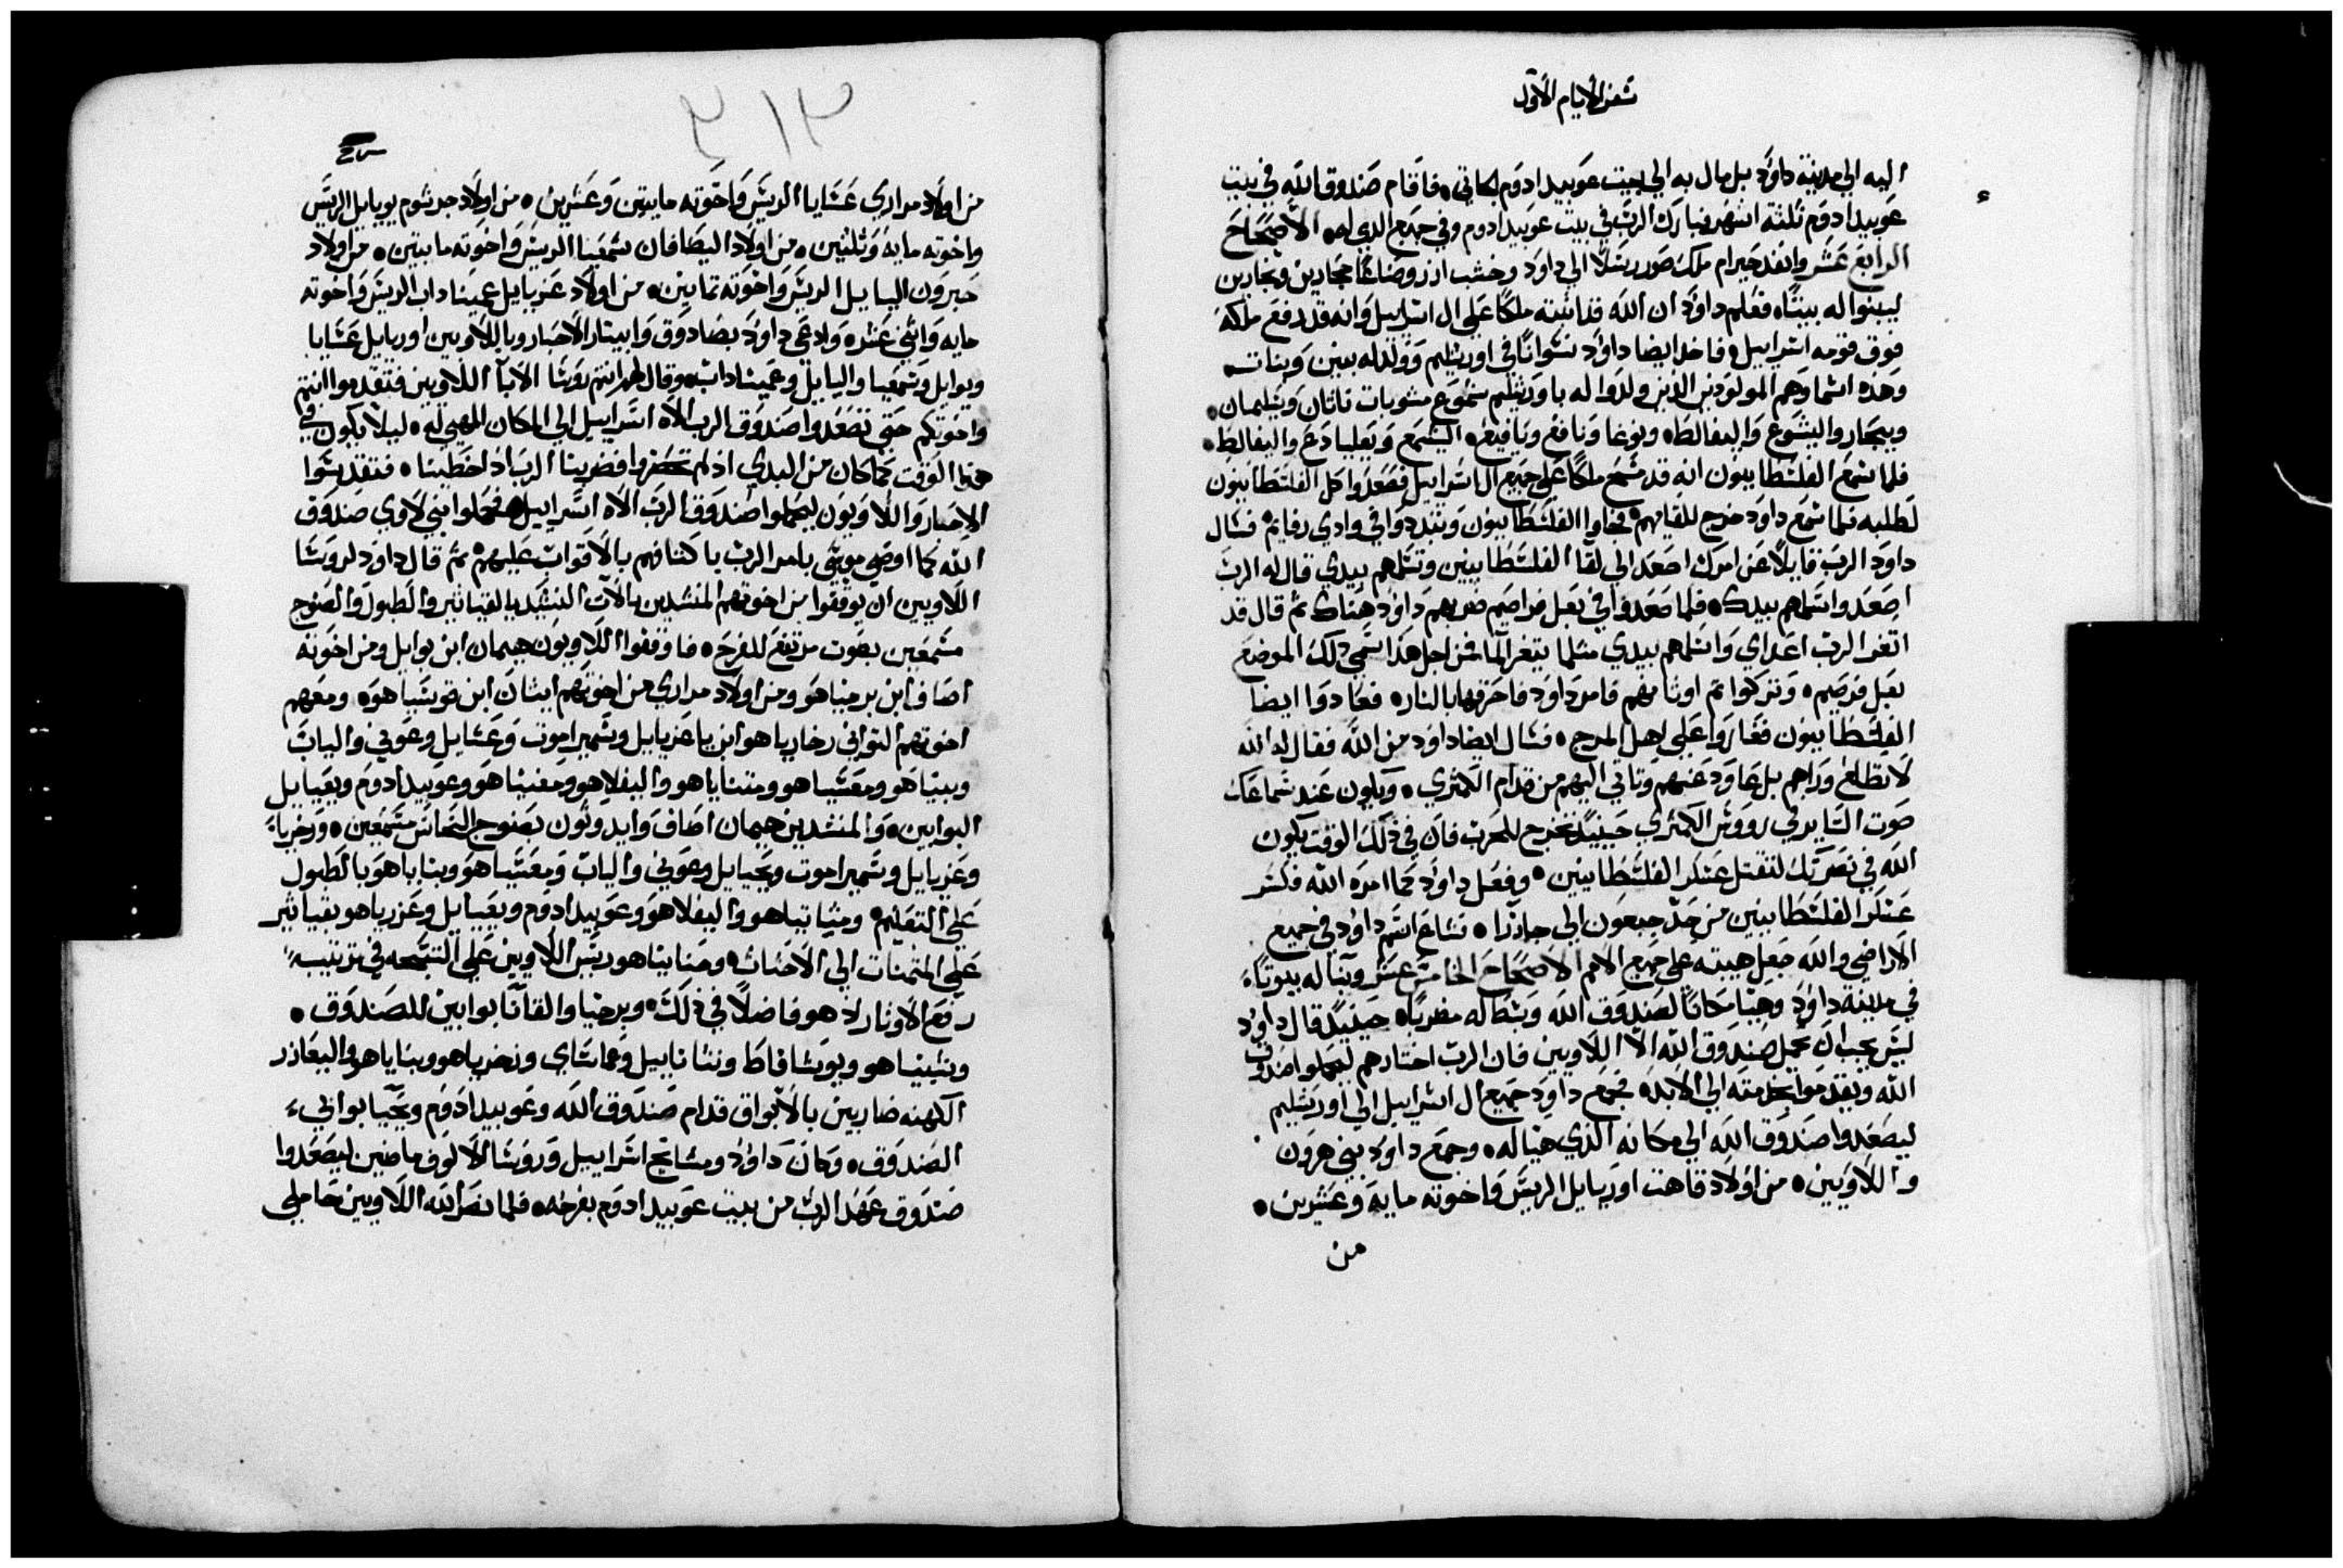 سفر الايام الاول
اليه الي مدينة داوُد بل مال به الي بيت عوبيد ادوم الجاتي. فاقام صندوق الله في بيت
عوبيد ادوم ثلثة اشهر فبارك الرب في بيت عوبيد ادوم وفي جميع الذي له. الاصحاح
الرابع عشر وانفد حيرام ملك صور رسلًا الي داود وخشب ارز وصناعًا حجارين ونجارين
ليبنوا له بيتًا. فعلم داوُد ان الله قد اثبته ملكًا علي ال اسراييل وانه قد رفع ملكه
فوق قومه اسراييل. فاخد ايضا داوُد نسوانًا في اورشليم وولد له بنين وبنات
وهذه اسماوهم المولودين الذين ولدوا له باورشليم سموع وشوبات ناتان وسليمان.
ويبحار واليشوع واليفالط. ونوغا ونافغ ويافيع. اليشمع وبعليادع واليفالط.
فلما سمع الفلسطانيون انه قد مسح ملكًا علي جميع ال اسراييل فصعدوا كل الفلسطانيون
لطلبه فلما سمع داود خرج للقايهم. فجاوا الفلسطانيون وتبددوا في وادي رفايم. فسال
داود الرب قايلًا عن امرك اصعد الي لقا الفلسطانيين وتسلمهم بيدي قال له الرب
اصعد واسلمهم بيدك. فلما صعدوا في بعل فراصيم ضربهم داوُد هناك ثم قال قد
اثغر الرب اعداي واسلمهم بيدي مثلما يتغر الما فمن اجل هذا سمي ذلك الموضع
بعل فرصيم. وتركوا ثم اوثانهم فامر داود فاحرقها بالنار. فعادوا ايضا
الفلسطانيون فغاروا علي اهل المرج. فسال ايضا داود من الله فقال له الله
لا تطلع وراهم بل عاود عنهم وتاتي اليهم من قدام الكمثري. ويكون عند سماعك
صوت الساير في رووس الكمثري حينيذ تخرج للحرب فان في ذلك الوقت يكون
الله في نصرتك لتقتل عسكر الفلسطانيين. وفعل داود كما امره الله فكسر
عسكر الفلسطانيين من حد جبعون الي جازرا. فشاع اسم داوُد في جميع
الاراضي والله جعل هيبته علي جميع الامم الاصحاح الخامس عشر وبنا له بيوتًا
في مدينة داوُد وهيا مكانًا لصندوق الله وبسط له مضربًا. حينيذ قال داوُد
ليس يجب ان يحمل صندوق الله الا اللاويين فان الرب اختارهم ليحملوا صندوق
الله ويقدموا خدمته الي الابد. فجمع داود جميع ال اسراييل الي اورشليم
ليصعدوا صندوق الله الي مكانه الذي هيا له. وجمع داود بني هرون
واللاويين. من اولاد قاهت اوريايل الريس واخوته مايه وعشرين.
من
٣١٣
من اولاد مراري عسايا الريس واخوته مايتين وعشرين. من اولاد جرشوم يويايل الريس
واخوته مايه وثلثين. من اولاد اليصافان سمعيا الريس واخوته مايتين. من اولاد
حبرون اليايل الريس واخوته ثمانين. من اولاد عزيايل عميناداب الريس واخوته
مايه واثني عشر. ودعي داوُد بصادوق وابيتار الاحبار وباللاويين اوريايل عسايا
ويوايل وسمعيا واليايل وعميناداب. وقال لهم انتم روسا الابآ اللاويين فتقدموا انتم
واخوتكم حتى تصعدوا صندوق الرب الاه اسراييل الي المكان المهيي له. ليلا يكون في
هذا الوقت كما كان من البدي اذ لم تحضروا فضربنا الرب اذ اخطينا. فتقدسوا
الاحبار واللاويون ليحملوا صندوق الرب الاه اسراييل. فحملوا بني لاوي صندوق
الله كما اوصي موسي بامر الرب باكتافهم بالاقواب عليهم. ثم قال داود لروسا
اللاويين ان يوقفوا من اخوتهم المنشدين بالآت النشيد بالقياثير والطبول والصنوج
مسمعين بصوت مرتفع للفرح. فاوقفوا اللاويون هيمان ابن يوايل ومن اخوته
اصاف ابن برخياهو ومن اولاد مراري من اخوتهم ايثان ابن قوشياهو. ومعهم
اخوتهم الثواني زخارياهو ابن ياعزيايل وشميراموت وعسايل وعوني والياب
وبنياهو ومعسياهو ومتتاياهو واليفلاهو ومقنياهو وعوبيد ادوم ويعيايل
البوابين. والمنشدين هيمان اصاف وايدوثون بصنوج النحاس مسمعين. وزخريا
وعزيايل وشميراموت ويحيايل وعوني والياب ومعسياهو وبناياهو بالطبول
علي التعليم. ومتاتياهو واليفلاهو وعوبيد ادوم ويعيايل وعزرياهو بقياثير
علي المتمنات الي الاحساب. وخنانياهو ريس اللاويين علي التسبحه في ترتيب
رفع الاوتار لانه هو فاضلًا في ذلك. وبرخيا والقانا بوابين للصندوق.
وشبنياهو ويوشافاط ونثانايل وعماساي وزخرياهو وبناياهو واليعازر
الكهنه ضاربين بالابواق قدام صندوق الله وعوبيد ادوم ويحيا بوابي
الصندوق. وكان داوُد ومشايخ اسراييل وروسا الالوف ماضين ليصعدوا
صندوق عهد الرب من بيت عوبيد ادوم بفرحه. فلما نصر الله اللاويين حاملي